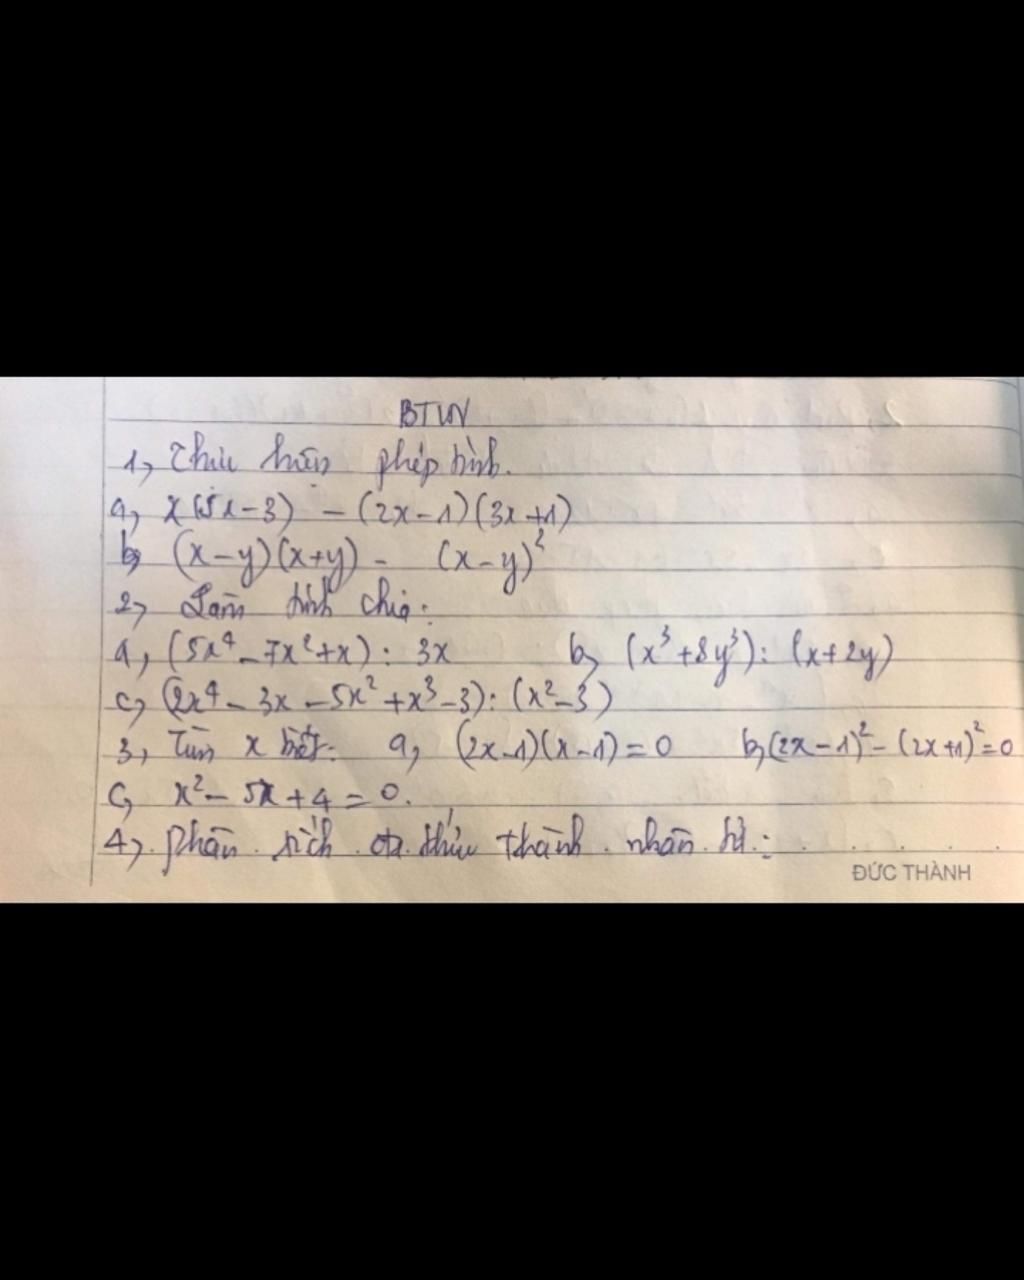 BTVN
1, Thực hiện phép tính.
a, x(5x-3) - (2x-1)(3x+1)
b, (x-y)(x+y) - (x-y)²
2, Làm tính chia:
a, (5x⁴-7x²+x): 3x b, (x³+8y³): (x+2y)
c, (2x⁴-3x-5x²+x³-3): (x²-3)
3, Tìm x biết: a, (2x-1)(x-1)=0 b, (2x-1)²-(2x+1)²=0
c, x²-5x+4=0.
4, Phân tích đa thức thành nhân tử:
ĐỨC THÀNH